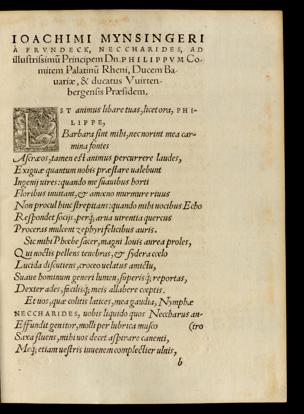 IOACHIMI MYNSINGERI
À FRVNDECK, NECCHARIDES, AD
illustrissimū Principem Dn. PHILIPPVM Co-
mitem Palatinū Rheni, Ducem Ba-
uariæ, & ducatus Vuirten-
bergensis Præsidem.
EST animus libare tuas, licet ora, PHI-
LIPPE,
Barbara sint mihi, nec norint mea car-
mina fontes
Ascræos, tamen est animus percurrere laudes,
Exiguæ quantum nobis præstare ualebunt
Ingenij uires: quando me suauibus horti
Floribus inuitant, & amœno murmure riuus
Non procul hinc strepitans: quando mihi uocibus Echo
Respondet socijs, perq́; arua uirentia quercus
Proceras mulcent zephyri felicibus auris.
Sic mihi Phœbe sacer, magni Iouis aurea proles,
Qui noctis pellens tenebras, & sydera cœlo
Lucida discutiens, croceo uelatus amictu,
Suaue hominum generi lumen, superisq́; reportas,
Dexter ades, facilisq́; meis allabere cœptis.
Et uos, quæ colitis latices, mea gaudia, Nymphæ
NECCHARIDES, uobis liquido quos Neccharus an-
Effundit genitor, molli per lubrica musco (tro
Saxa fluens, mihi uos decet aspirare canenti,
Meq́; etiam uestris iuuenem complectier ulnis,
b